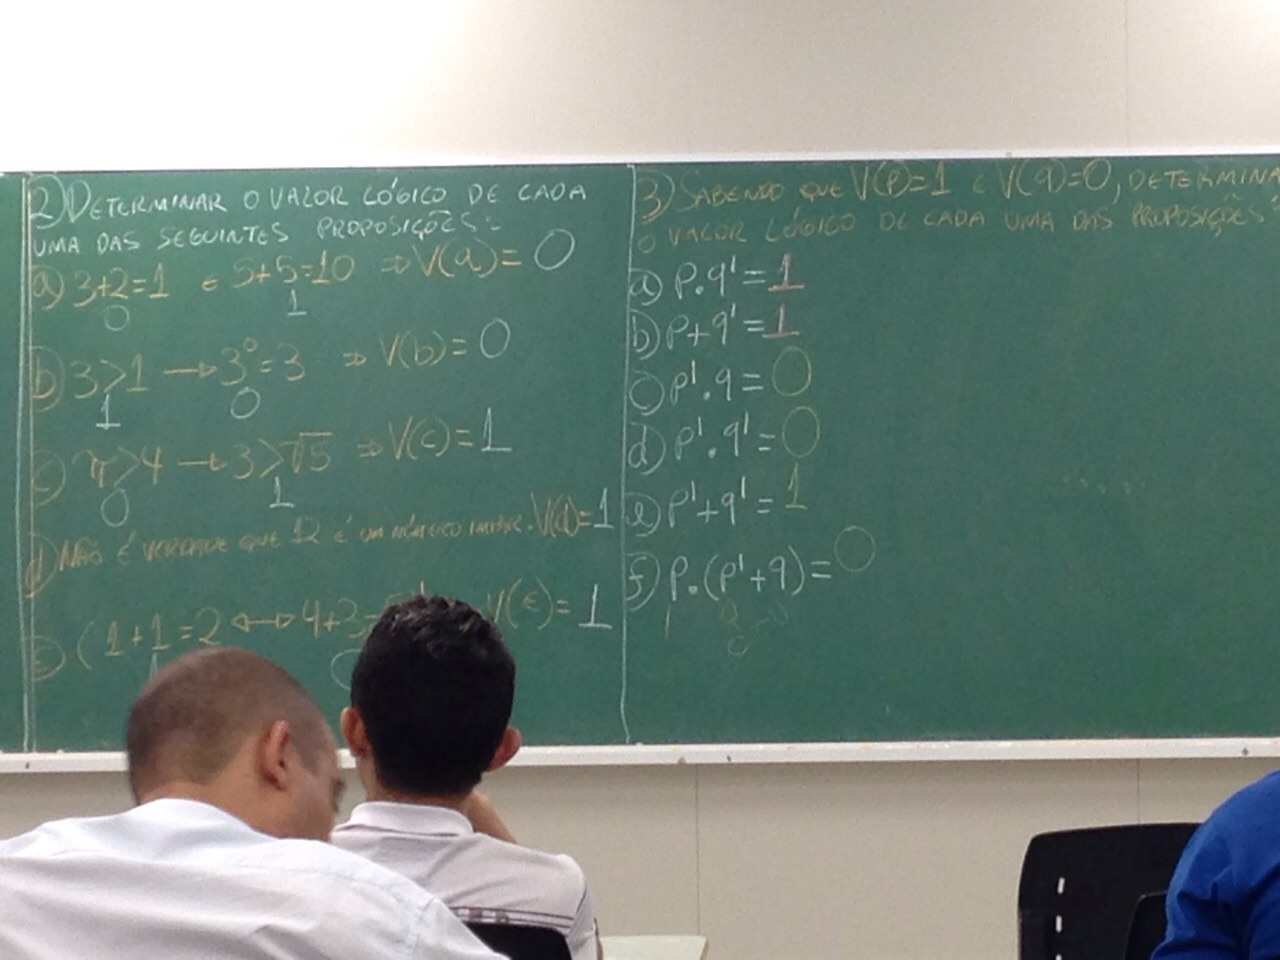 2) DETERMINAR O VALOR LÓGICO DE CADA
UMA DAS SEGUINTES PROPOSIÇÕES:
a) 3+2=1 e 5+5=10 ⇒ V(a)= 0
0 1
b) 3>1 → 3⁰=3 ⇒ V(b)= 0
1 0
c) π>4 → 3>√5 ⇒ V(c)= 1
0 1
d) NÃO É VERDADE QUE 12 É UM NÚMERO ÍMPAR. V(d)=1
e) (1+1=2 ↔ 4+3 V(e)= 1
3) SABENDO QUE V(p)=1 e V(q)=0, DETERMINA
O VALOR LÓGICO DE CADA UMA DAS PROPOSIÇÕES:
a) p.q'= 1
b) p+q'= 1
c) p'.q= 0
d) p'.q'= 0
e) p'+q'= 1
f) p.(p'+q)= 0